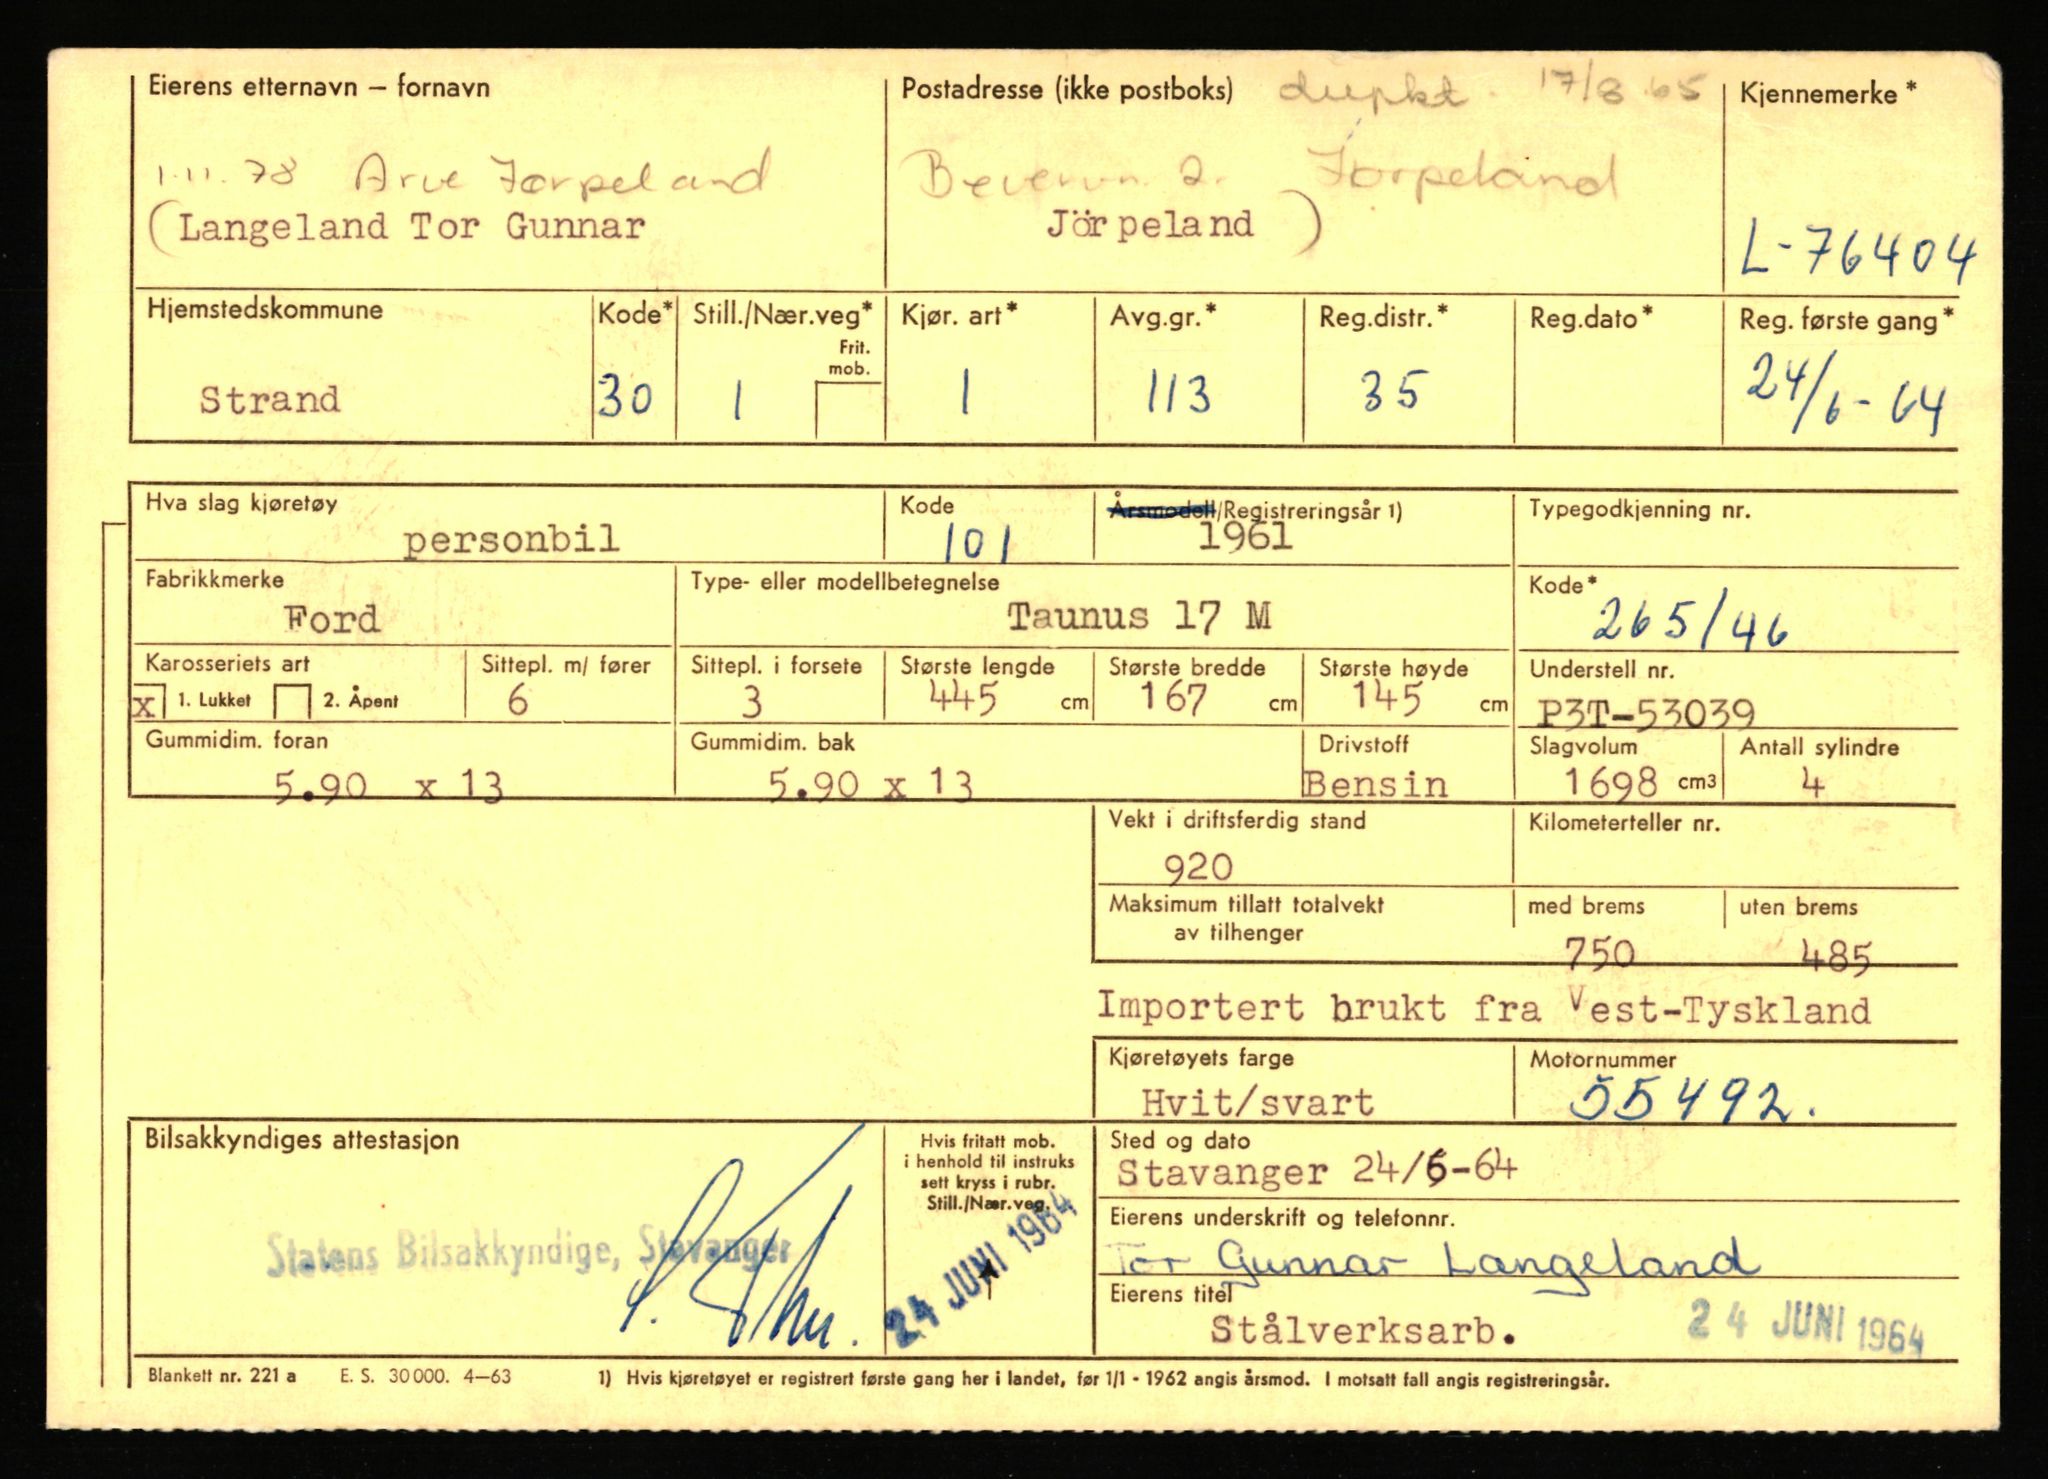 Eierens etternavn – fornavn
Postadresse (ikke postboks) dupkt. 17/8 65
Kjennemerke*
1.11.78 Arve Jørpeland
Beverv. 2. Jørpeland
(Langeland Tor Gunnar
Jörpeland )
L-76404
Hjemstedskommune Kode* Still./Nær.veg* Kjør. art* Avg.gr.* Reg.distr.* Reg.dato* Reg. første gang*
Frit. mob.
Strand 30 1 1 113 35 24/6-64
Hva slag kjøretøy Kode Årsmodell/Registreringsår 1) Typegodkjenning nr.
personbil 101 1961
Fabrikkmerke Type- eller modellbetegnelse Kode*
Ford Taunus 17 M 265/46
Karosseriets art Sittepl. m/ fører Sittepl. i forsete Største lengde Største bredde Største høyde Understell nr.
x 1. Lukket 2. Åpent 6 3 445 cm 167 cm 145 cm P3T-53039
Gummidim. foran Gummidim. bak Drivstoff Slagvolum Antall sylindre
5.90 x 13 5.90 x 13 Bensin 1698 cm3 4
Vekt i driftsferdig stand Kilometerteller nr.
920
Maksimum tillatt totalvekt med brems uten brems
av tilhenger
750 485
Importert brukt fra Vest-Tyskland
Kjøretøyets farge Motornummer
Hvit/svart 55492.
Bilsakkyndiges attestasjon
Hvis fritatt mob.
i henhold til instruks
sett kryss i rubr.
Still./Nær.veg.
Sted og dato
Stavanger 24/6-64
Eierens underskrift og telefonnr.
Statens Bilsakkyndige, Stavanger
24 JUNI 1964
Tor Gunnar Langeland
Eierens titel
Stålverksarb.
24 JUNI 1964
Blankett nr. 221 a E. S. 30000. 4–63 1) Hvis kjøretøyet er registrert første gang her i landet, før 1/1 - 1962 angis årsmod. I motsatt fall angis registreringsår.